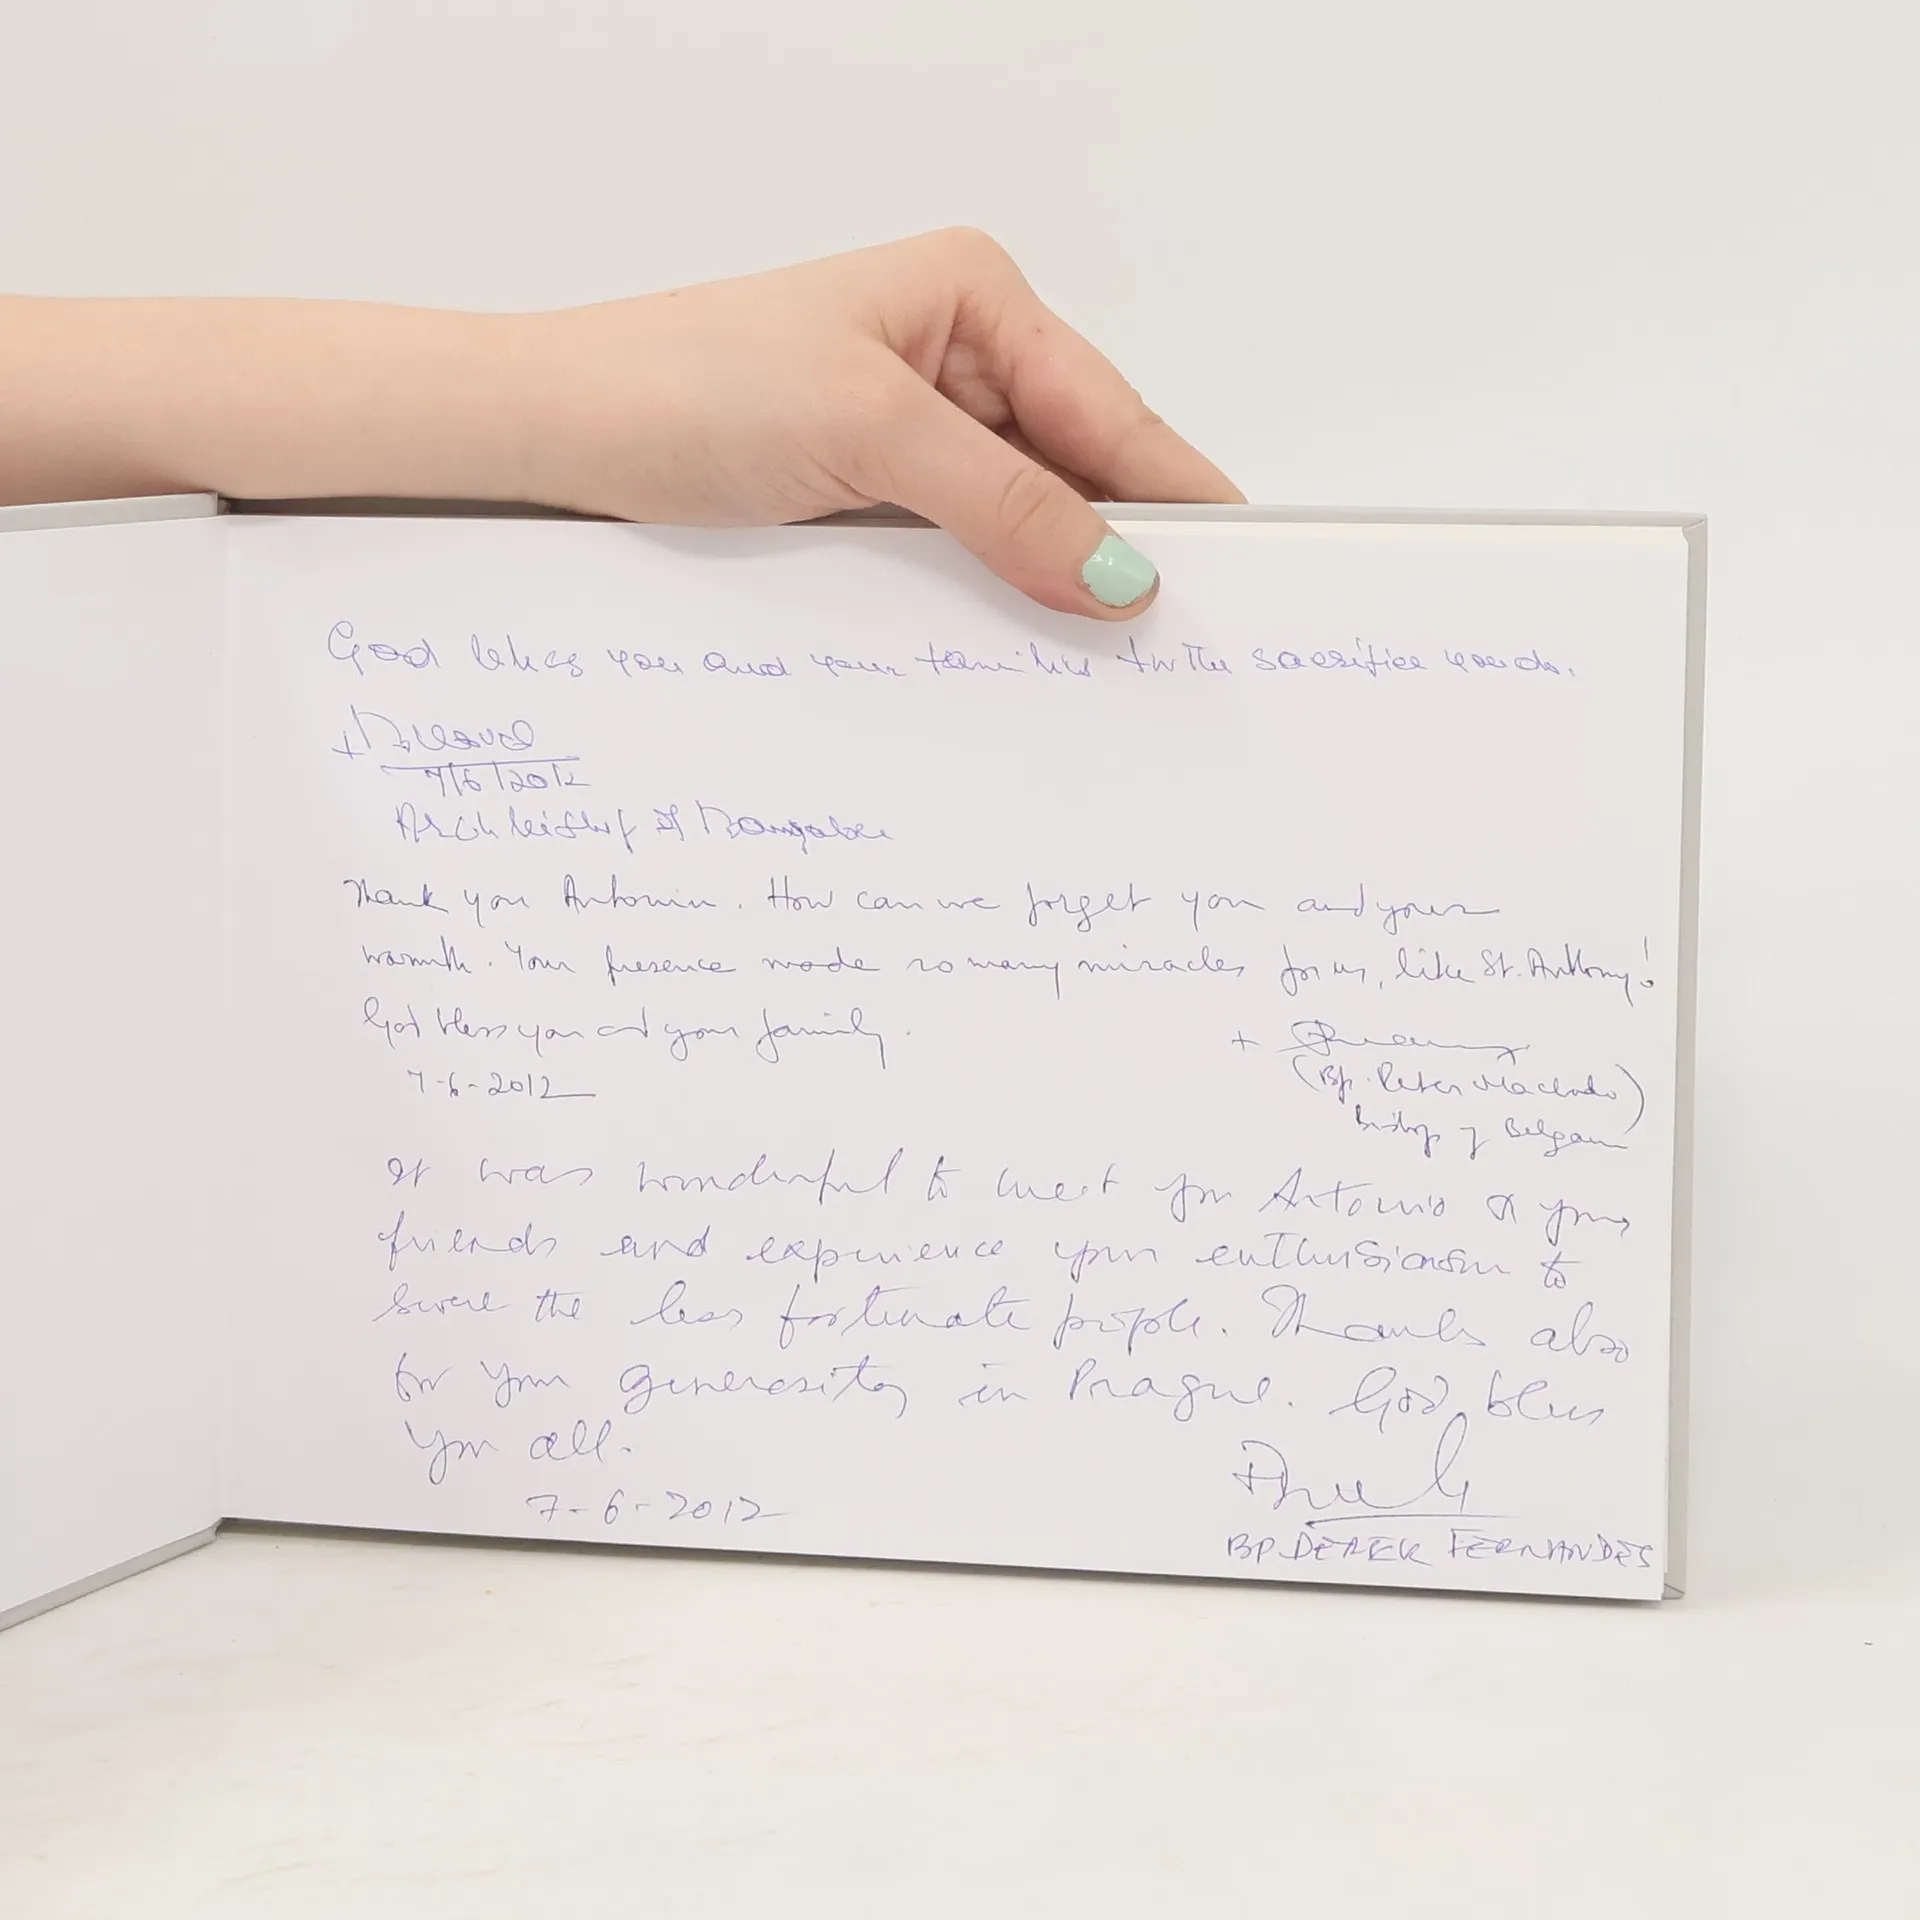 God bless you and your families for the sacrifice you do.
7/6/2012
Archbishop of Bangalore
Thank you Antonin. How can we forget you and your
warmth. Your presence made so many miracles for us, like St. Anthony!
God bless you and your family.
7-6-2012
+
(Bp. Peter Machado)
Bishop of Belgaum
It was wonderful to meet you Antonio & your
friends and experience your enthusiasm to
serve the less fortunate people. Thanks also
for your generosity in Prague. God bless
you all.
7-6-2012
BP. DEREK FERNANDES